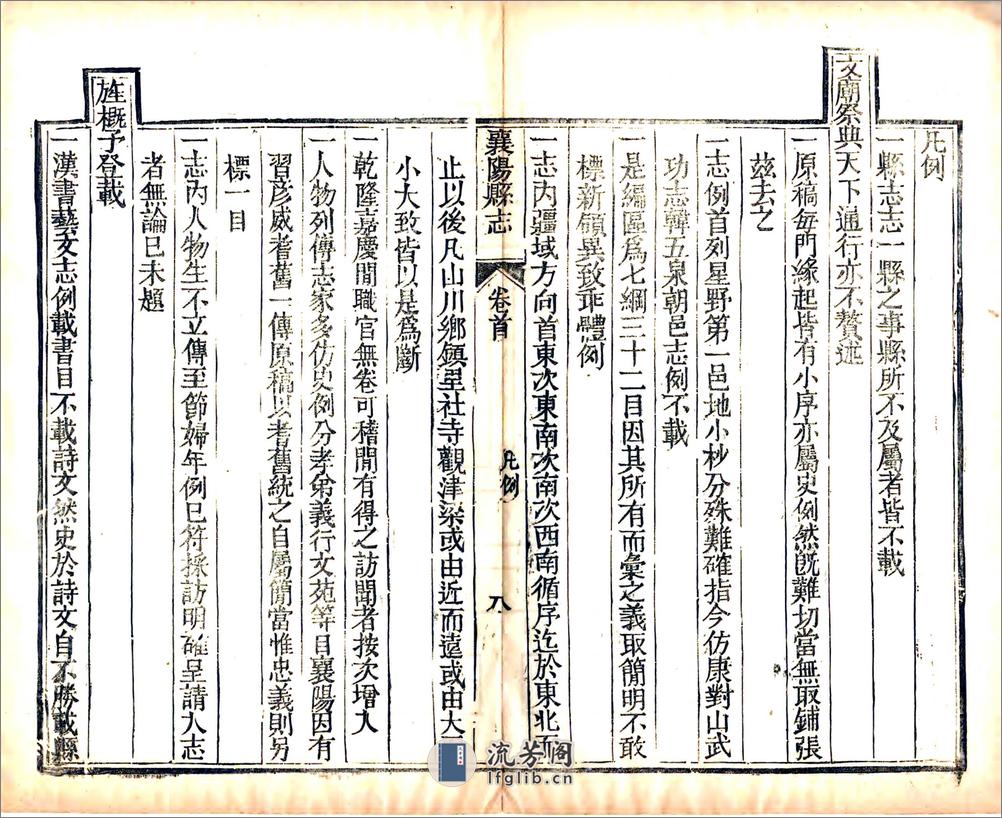 凡例
一縣志志一縣之事縣所不及屬者皆不載
文廟祭典天下通行亦不贅述
一原稿每門緣起皆有小序亦屬史例然旣難切當無取鋪張
茲去之
一志例首列星野第一邑地小杪分殊難確指今仿康對山武
功志韓五泉朝邑志例不載
一是編區爲七綱三十二目因其所有而彙之義取簡明不敢
標新領異致乖體例
一志內疆域方向首東次東南次南次西南循序迄於東北而
襄陽縣志
卷首
凡例
八
止以後凡山川鄉鎮里社寺觀津梁或由近而遠或由大
小大致皆以是爲斷
一乾隆嘉慶閒職官無卷可稽閒有得之訪聞者按次增入
一人物列傳志家多仿史例分孝弟義行文苑等目襄陽因有
習彥威耆舊一傳原稿以耆舊統之自屬簡當惟忠義則另
標一目
一志內人物生不立傳至節婦年例已符採訪明確呈請入志
者無論已未題
旌槪予登載
一漢書藝文志例載書目不載詩文然史於詩文自不勝載縣
流芳閣
lfglib.cn